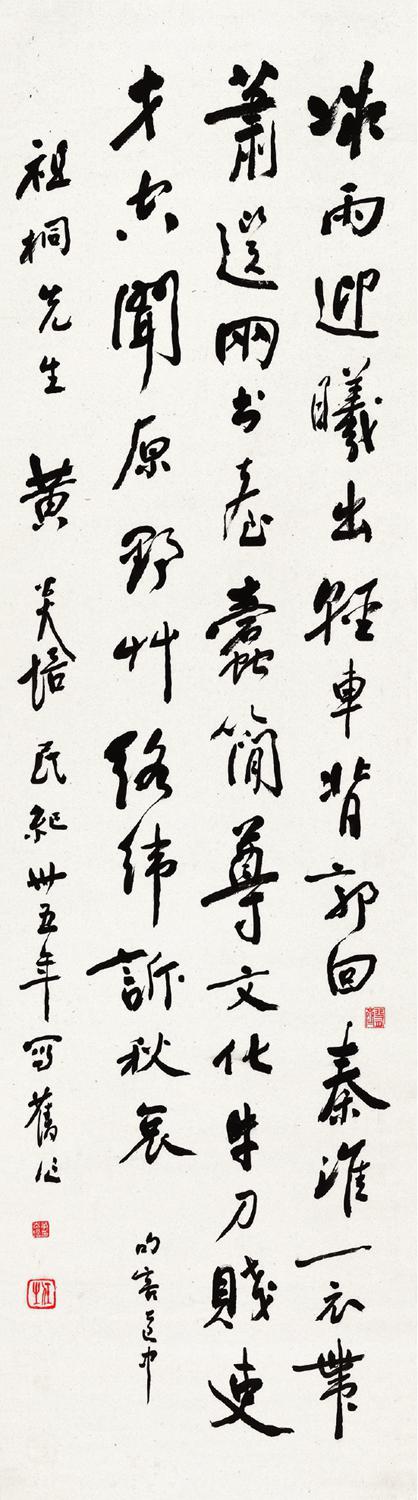 雨迎曦出輕車背郭回秦淮一衣帶
蕭選兩書臺蠹簡尊文化牛刀賤吏
才聞原野艸絡緯訴秋哀 句容道中
祖桐先生 黃炎培 民紀卅五年寫舊作